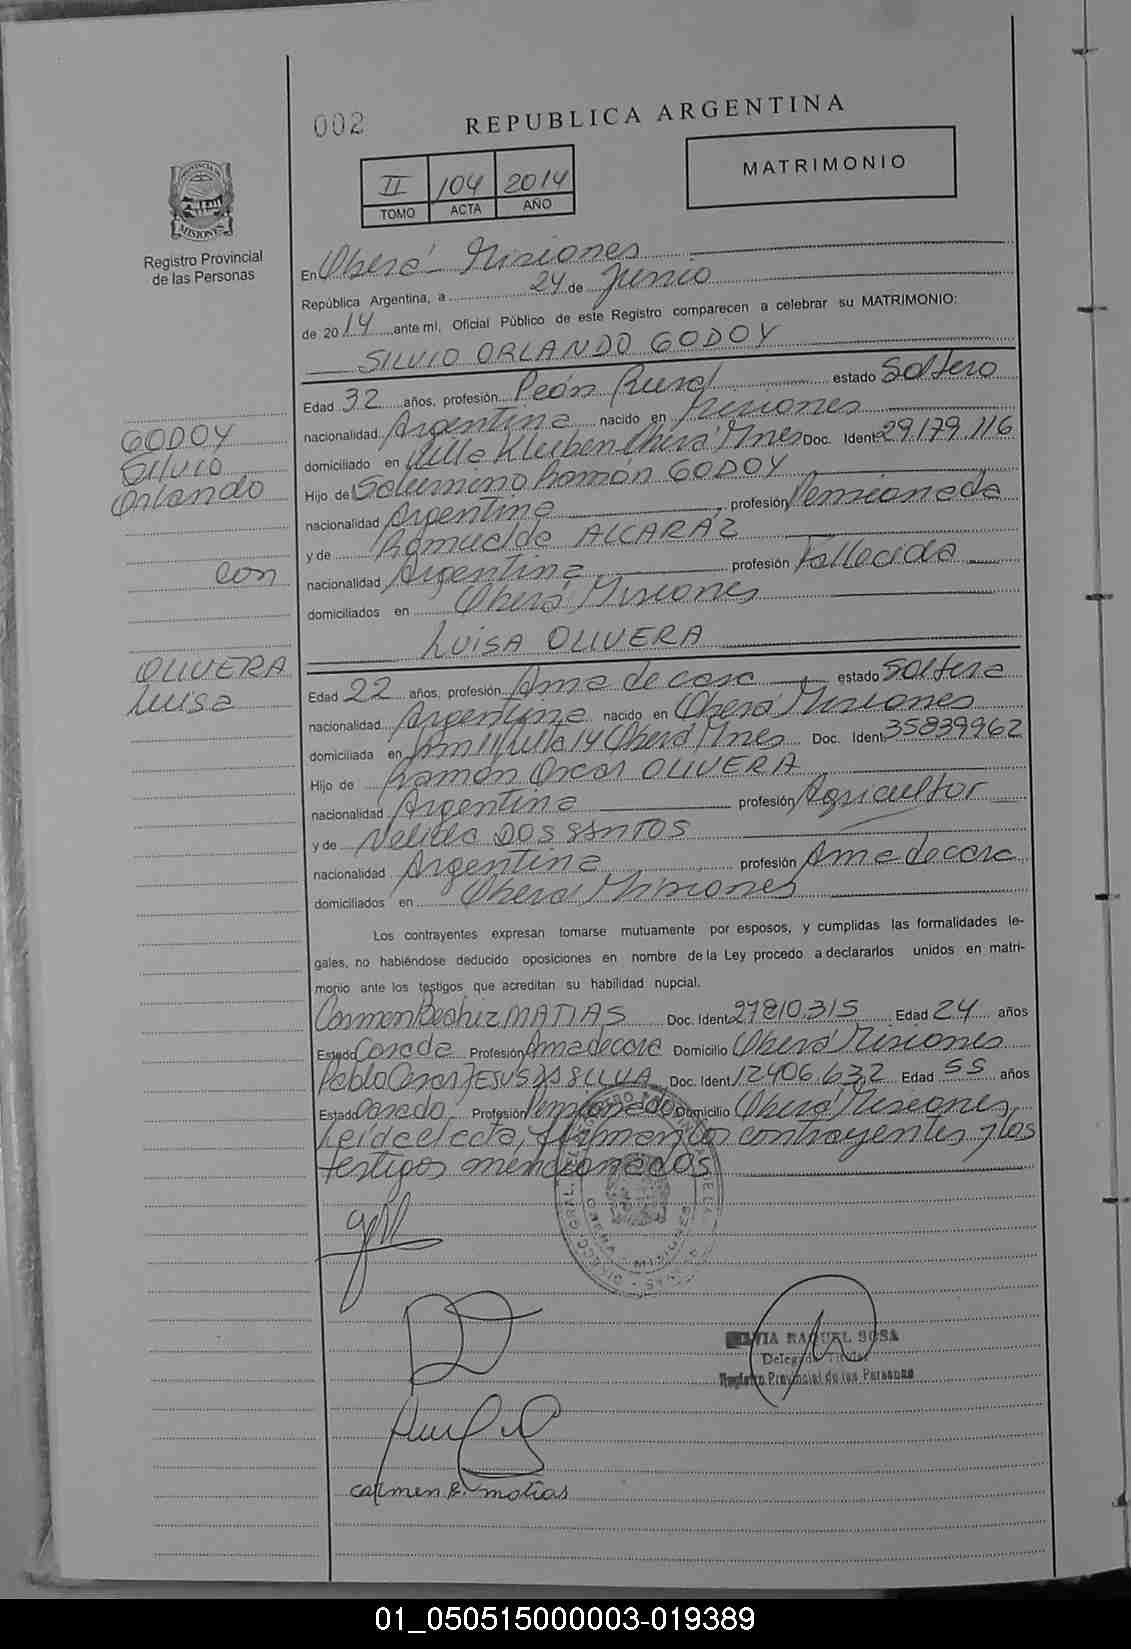 002
REPUBLICA ARGENTINA
II 104 2014
TOMO ACTA AÑO
MATRIMONIO
PROVINCIA DE
MISIONES
Registro Provincial
de las Personas
En Oberá - Misiones
República Argentina, a 24 de Junio
de 2014 ante mí, Oficial Público de este Registro comparecen a celebrar su MATRIMONIO:
SILVIO ORLANDO GODOY
Edad 32 años, profesión Peón Rural estado Soltero
nacionalidad Argentina nacido en Misiones
domiciliado en Villa Oberá Mnes Doc. Ident 29.179.116
Hijo de Ramón GODOY
nacionalidad Argentina profesión Pensionada
y de Romualda ALCARAZ
nacionalidad Argentina profesión Fallecida
domiciliados en Oberá Misiones
LUISA OLIVERA
GODOY
Silvio
Orlando
con
OLIVERA
Luisa
Edad 22 años, profesión Ama de casa estado Soltera
nacionalidad Argentina nacido en Oberá Misiones
domiciliada en Km 11 Ruta 14 Oberá Mnes Doc. Ident 35839962
Hijo de Ramón Oscar OLIVERA
nacionalidad Argentina profesión Agricultor
y de DOS SANTOS
nacionalidad Argentina profesión Ama de casa
domiciliados en Oberá Misiones
Los contrayentes expresan tomarse mutuamente por esposos, y cumplidas las formalidades le-
gales, no habiéndose deducido oposiciones en nombre de la Ley procedo a declararlos unidos en matri-
monio ante los testigos que acreditan su habilidad nupcial.
Carmen Beatriz MATIAS Doc. Ident 27810.315 Edad 24 años
Estado Casada Profesión Ama de casa Domicilio Oberá Misiones
Pablo Cesar JESUS DA SILVA Doc. Ident 12406.632 Edad 55 años
Estado Casado Profesión Pensionado Domicilio Oberá Misiones
Leída el acta, firman los contrayentes y los
testigos mencionados
OBERA - MISIONES
SILVIA RAQUEL SOSA
Delegada Titular
Registro Provincial de las Personas
Carmen B. matias
01_050515000003-019389